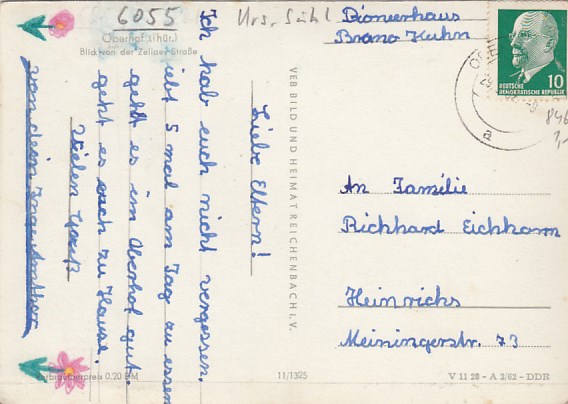 6055
Urs. Sühl
Oberhof (Thür.)
Blick von der Zellaer Straße
Liebe Eltern!
Ich hab euch nicht vergessen.
iebt 5 mal am Tag zu essen
geht es im Oberhof gut.
geht es euch zu Hause.
Vielen Gruß
von dein
Verbraucherpreis 0,20 DM
VEB BILD UND HEIMAT REICHENBACH i. V.
11/1325
Pionierhaus
Bruno Kuhn
DEUTSCHE
DEMOKRATISCHE REPUBLIK
10
a
846
An Familie
Richhard Eichhorn
Heinrichs
Meiningerstr. 73
V 11 28 - A 2/62 - DDR